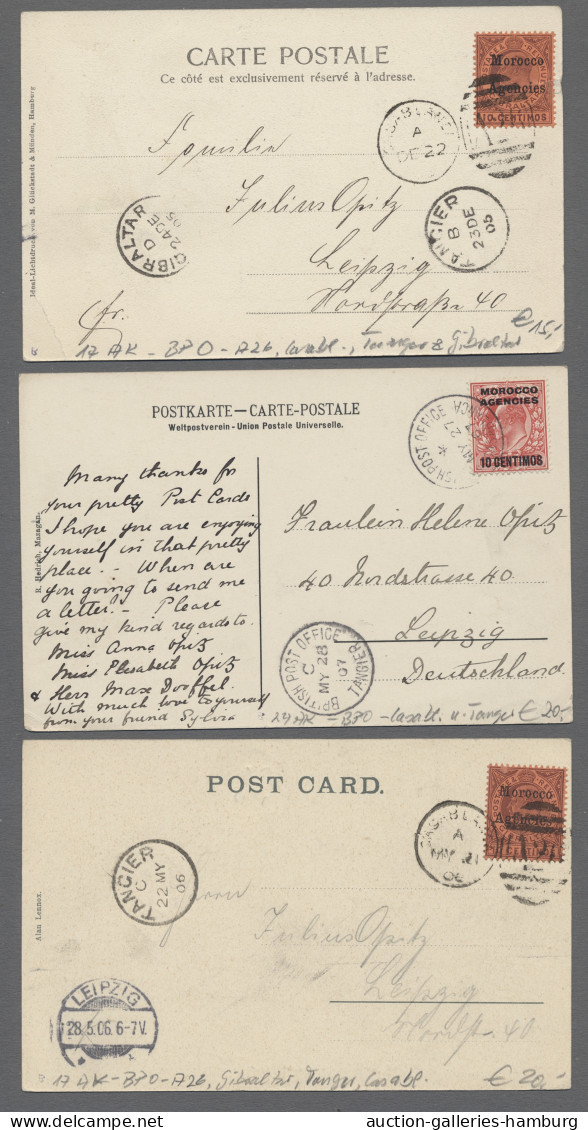 CARTE POSTALE
Ce côté est exclusivement réservé à l'adresse.
Ideal-Lichtdruck von M. Glückstadt & Münden, Hamburg
Morocco
Agencies
10 CENTIMOS
A
DE 22
Julius Opitz
Leipzig
Nordstraße 40
GIBRALTAR
D
24 DE
05
TANGIER
B
23 DE
05
fr.
€ 15,-
17 AK - BPO - A26, Casabl., Tanger & Gibraltar
POSTKARTE — CARTE-POSTALE
Weltpostverein - Union Postale Universelle.
R. Hedrich, Mazagan.
MOROCCO
AGENCIES
10 CENTIMOS
BRITISH POST OFFICE
MY 27
Many thanks for
your pretty Post Cards
I hope you are enjoying
yourself in that pretty
place. - When are
you going to send me
a letter. - Please
give my kind regards to
Miss Anna Opitz
Miss Elisabeth Opitz
& Herr Max
With much love to yourself
from your friend Sylvia
Fraulein Helene Opitz
40 Nordstrasse 40
Leipzig
Deutschland
BRITISH POST OFFICE TANGIER
C
MY 28
07
27 AK - BPO - Casabl. u. Tanger € 20,-
POST CARD.
Alan Lennox.
Morocco
Agencies
CENTIMOS
CASABLANCA
A
MY 21
06
TANGIER
C
22 MY
06
Herrn
Julius Opitz
Leipzig
Nordstr. 40
LEIPZIG
28.5.06. 6-7V.
17 AK - BPO - A26, Gibraltar, Tanger, Casabl. € 20,-
auction-galleries-hamburg